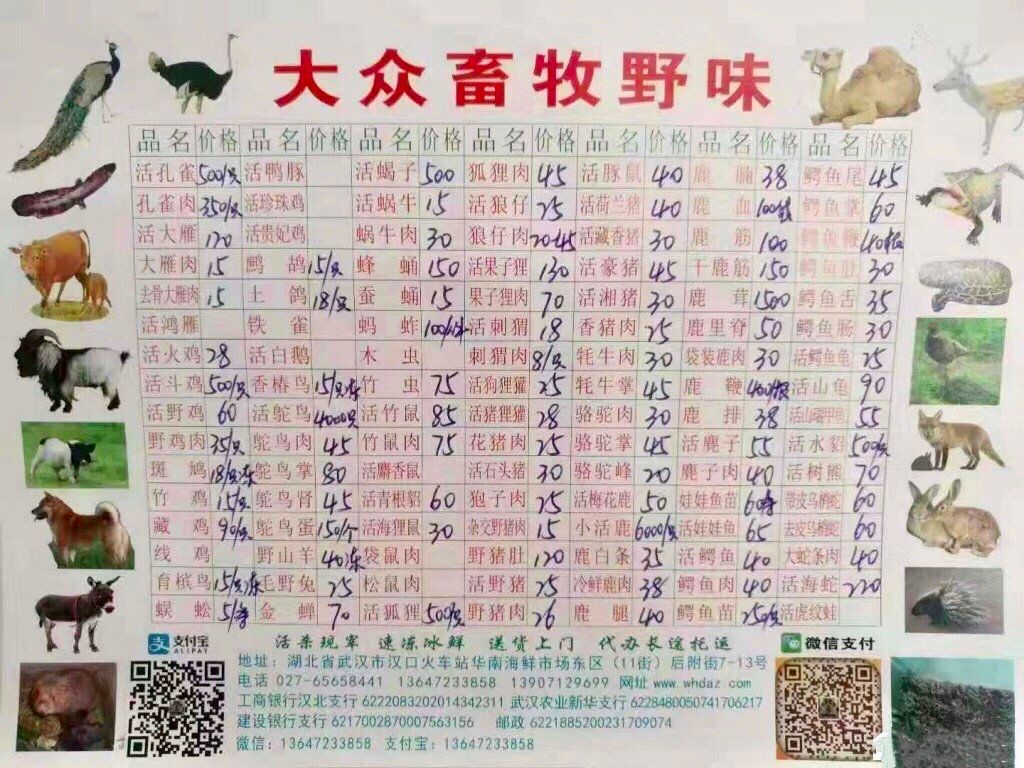 大众畜牧野味
品名 价格 品名 价格 品名 价格 品名 价格 品名 价格 品名 价格 品名 价格
活孔雀 500/只 活鸭豚 活蝎子 500 狐狸肉 45 活豚鼠 40 鹿腩 38 鳄鱼尾 45
孔雀肉 350/只 活珍珠鸡 活蜗牛 15 活狼仔 25 活荷兰猪 40 鹿血 鳄鱼掌 60
活大雁 120 活贵妃鸡 蜗牛肉 30 狼仔肉 20-45 活藏香猪 30 鹿筋 100 鳄鱼鞭
大雁肉 15 鹧鸪 15/只 蜂蛹 150 活果子狸 130 活豪猪 45 干鹿筋 150 鳄鱼肚 30
去骨大雁肉 15 土鸽 18/只 蚕蛹 15 果子狸肉 70 活湘猪 30 鹿茸 1500 鳄鱼舌 35
活鸿雁 铁雀 蚂蚱 活刺猬 18 香猪肉 25 鹿里脊 50 鳄鱼肠 30
活火鸡 28 活白鹅 木虫 刺猬肉 8/只 牦牛肉 30 袋装鹿肉 30 活鳄鱼龟 25
活斗鸡 500/只 香椿鸟 15/只冻 竹虫 75 活狗狸獾 25 牦牛掌 45 鹿鞭 400/根 活山龟 90
活野鸡 60 活鸵鸟 4000只 活竹鼠 85 活猪狸獾 28 骆驼肉 30 鹿排 38 55
野鸡肉 35/只 鸵鸟肉 45 竹鼠肉 75 花猪肉 25 骆驼掌 45 活麂子 55 活水貂 500/只
斑鸠 18/只冻 鸵鸟掌 80 活麝香鼠 活石头猪 30 骆驼峰 20 麂子肉 40 活树熊 70
竹鸡 15/只 鸵鸟肾 45 活青根貂 60 狍子肉 25 活梅花鹿 50 娃娃鱼苗 带皮乌梢蛇 60
藏鸡 90/只 鸵鸟蛋 150/个 活海狸鼠 30 杂交野猪肉 15 小活鹿 6000/只 活娃娃鱼 65 去皮乌梢蛇 60
线鸡 野山羊 40冻 袋鼠肉 野猪肚 120 鹿白条 35 活鳄鱼 40 大蛇条肉 40
育槟鸟 15/只冻 毛野兔 25 松鼠肉 活野猪 25 冷鲜鹿肉 38 鳄鱼肉 40 活海蛇 220
蜈蚣 金蝉 70 活狐狸 500/只 野猪肉 26 鹿腿 40 鳄鱼苗 250/只 活虎纹蛙
支付宝 活杀现宰 速冻冰鲜 送货上门 代办长途托运 微信支付
ALIPAY
地址：湖北省武汉市汉口火车站华南海鲜市场东区（11街）后附街7-13号
电话 027-65658441 13647233858 13907129699 网址www.whdaz.com
工商银行汉北支行 6222083202014342311 武汉农业新华支行 6228480050741706217
建设银行支行 6217002870007563156 邮政 6221885200231709074
微信：13647233858 支付宝：13647233858